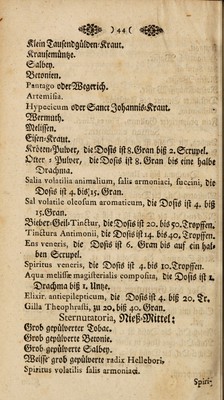 ( 44 )
Klein Tausendgülden-Kraut.
Krausemüntze.
Salbey.
Betonien.
Pantago oder Wegerich.
Artemisia.
Hypericum oder Sanct Johannis-Kraut.
Wermuth.
Melissen.
Eisen-Kraut.
Kröten-Pulver, die Dosis ist 8. Gran biß 2. Scrupel.
Otter-Pulver, die Dosis ist 8. Gran bis eine halbe
Drachma.
Salia volatilia animalium, salis armoniaci, succini, die
Dosis ist 4. biß 15. Gran.
Sal volatile oleosum aromaticum, die Dosis ist 4. biß
15. Gran.
Bieber-Geil-Tinctur, die Dosis ist 20. biß 50. Tropffen.
Tinctura Antimonii, die Dosis ist 14. biß 40. Tropffen.
Ens veneris, die Dosis ist 6. Gran bis auf ein hal-
ben Scrupel.
Spiritus veneris, die Dosis ist 4. biß 10. Tropffen.
Aqua melissæ magisterialis composita, die Dosis ist 1.
Drachma biß 1. Untze.
Elixir. antiepilepticum, die Dosis ist 4. biß 20. Tr.
Gilla Theophrasti, zu 20. biß 40. Gran.
Sternutatoria, Nieß-Mittel;
Grob gepülverter Tobac.
Grob gepülverte Betonie.
Grob gepülverte Salbey.
Weisse grob gepülverte radix Hellebori.
Spiritus volatilis salis armoniaci.
Spirit.